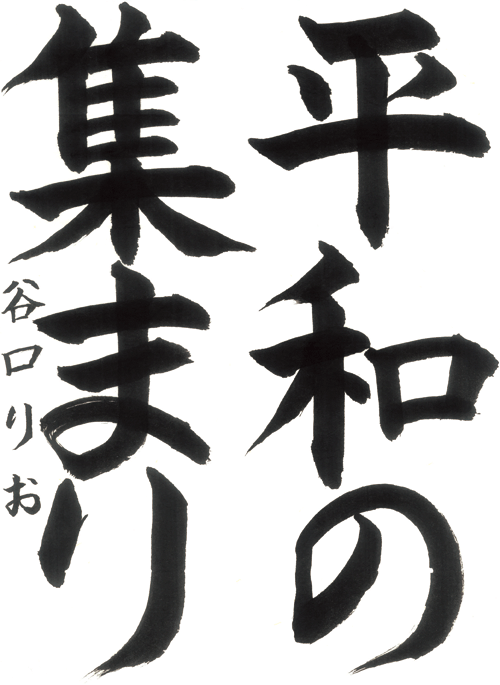 平和の
集まり
谷口りお